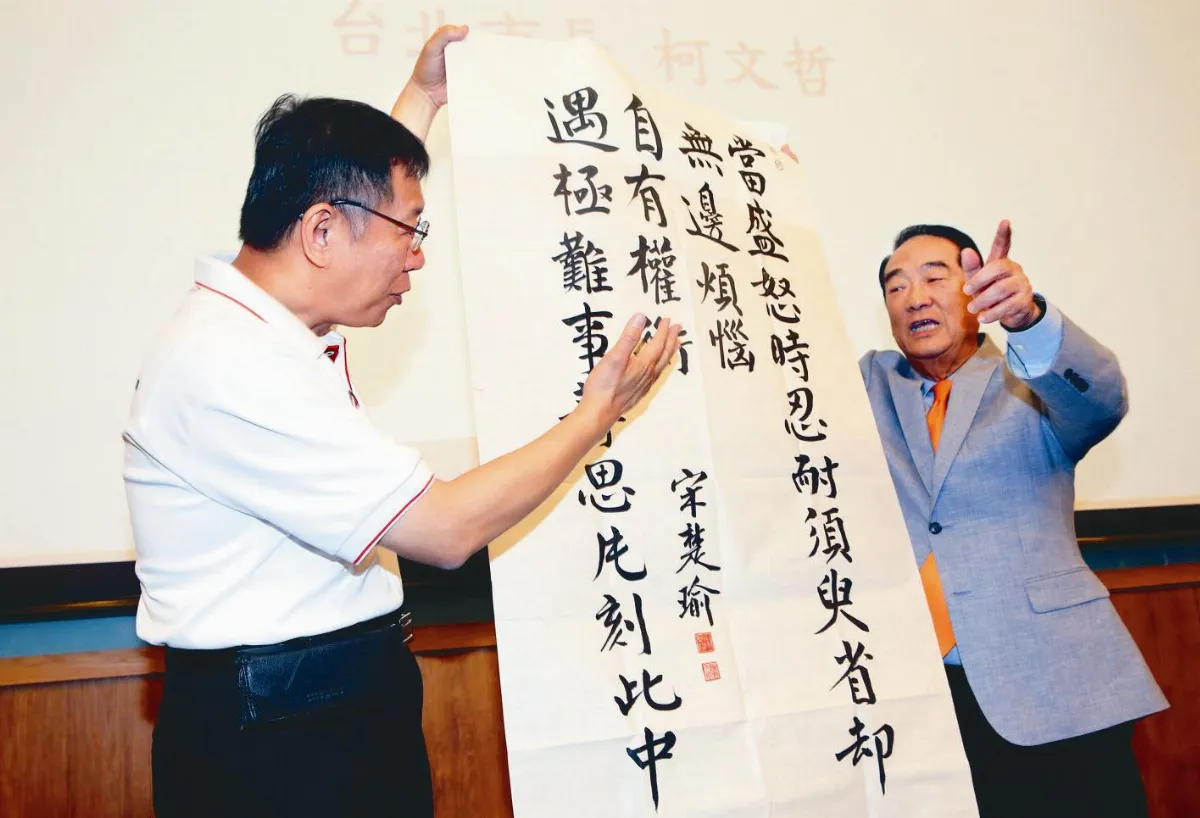 台北市長 柯文哲
當盛怒時忍耐須臾省却
無邊煩惱
遇極難事思片刻此中
自有權術
宋楚瑜